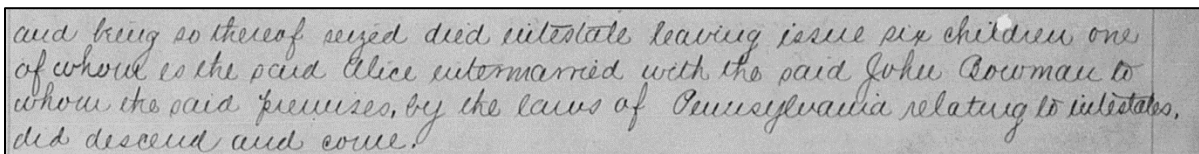 and being so thereof seized died intestate leaving issue six children one
of whom is the said Alice intermarried with the said John Bowman to
whom the said premises, by the laws of Pennsylvania relating to intestates,
did descend and come.